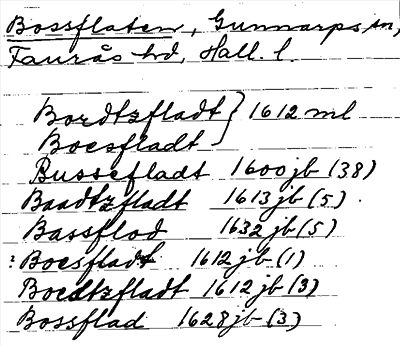 Bossflaten, Gunnarps sn,
Faurås hd, Hall. l.
Bordtzfladt } 1612 ml
Boesfladt
Bussefladt 1600 jb (38)
Baadtzfladt 1613 jb (5)
Bassflod 1632 jb (5)
? Boesfladt 1612 jb (1)
Boedtzfladt 1612 jb (3)
Bossflad 1628 jb (3)